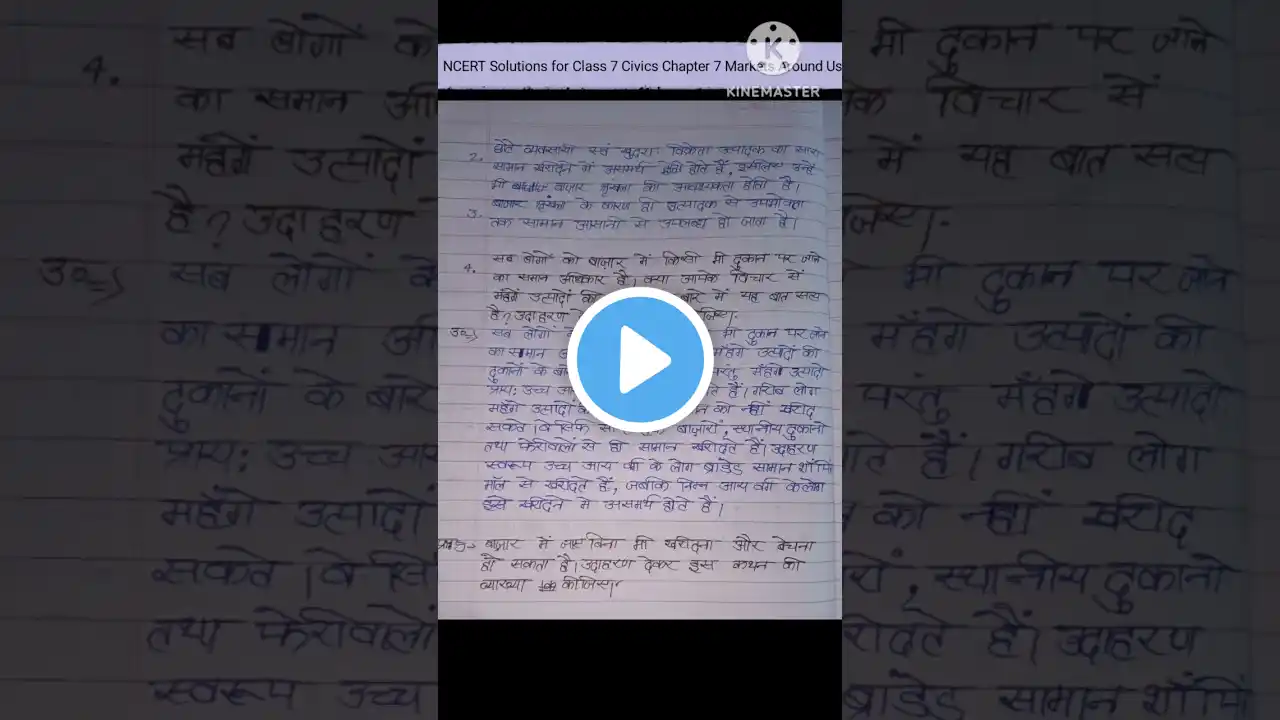 NCERT Solutions for Class 7 Civics Chapter 7 Markets Around Us
KINEMASTER
2. छोटे व्यवसायी एवं खुदरा विक्रेता उत्पादक का सारा
सामान खरीदने में असमर्थ होते हैं, इसलिए उन्हें
भी बाजार श्रृंखला की आवश्यकता होती है।
3. बाजार श्रृंखला के कारण ही उत्पादक से उपभोक्ता
तक सामान आसानी से उपलब्ध हो जाता है।
4. सब लोगों को बाज़ार में किसी भी दुकान पर जाने
का समान अधिकार है। क्या आपके विचार से
महंगे उत्पादों की बारे में यह बात सत्य
है? उदाहरण
उ०=) सब लोगों भी दुकान पर जाने
का समान महँगे उत्पादों की
दुकानों के बारे परंतु महँगे उत्पादो
प्रायः उच्च हैं। गरीब लोग
महँगे उत्पादों को नहीं खरीद
सकते। वे सिर्फ बाज़ारों, स्थानीय दुकानो
तथा फेरीवालों से ही सामान खरीदते हैं। उदाहरण
स्वरूप उच्च आय वर्ग के लोग ब्रांडेड सामान शॉपिंग
मॉल से खरीदते हैं, जबकि निम्न आय वर्ग के लोग
इसे खरीदने में असमर्थ होते हैं।
बाज़ार में जाए बिना भी खरीदना और बेचना
हो सकता है। उदाहरण देकर इस कथन की
व्याख्या कीजिए।